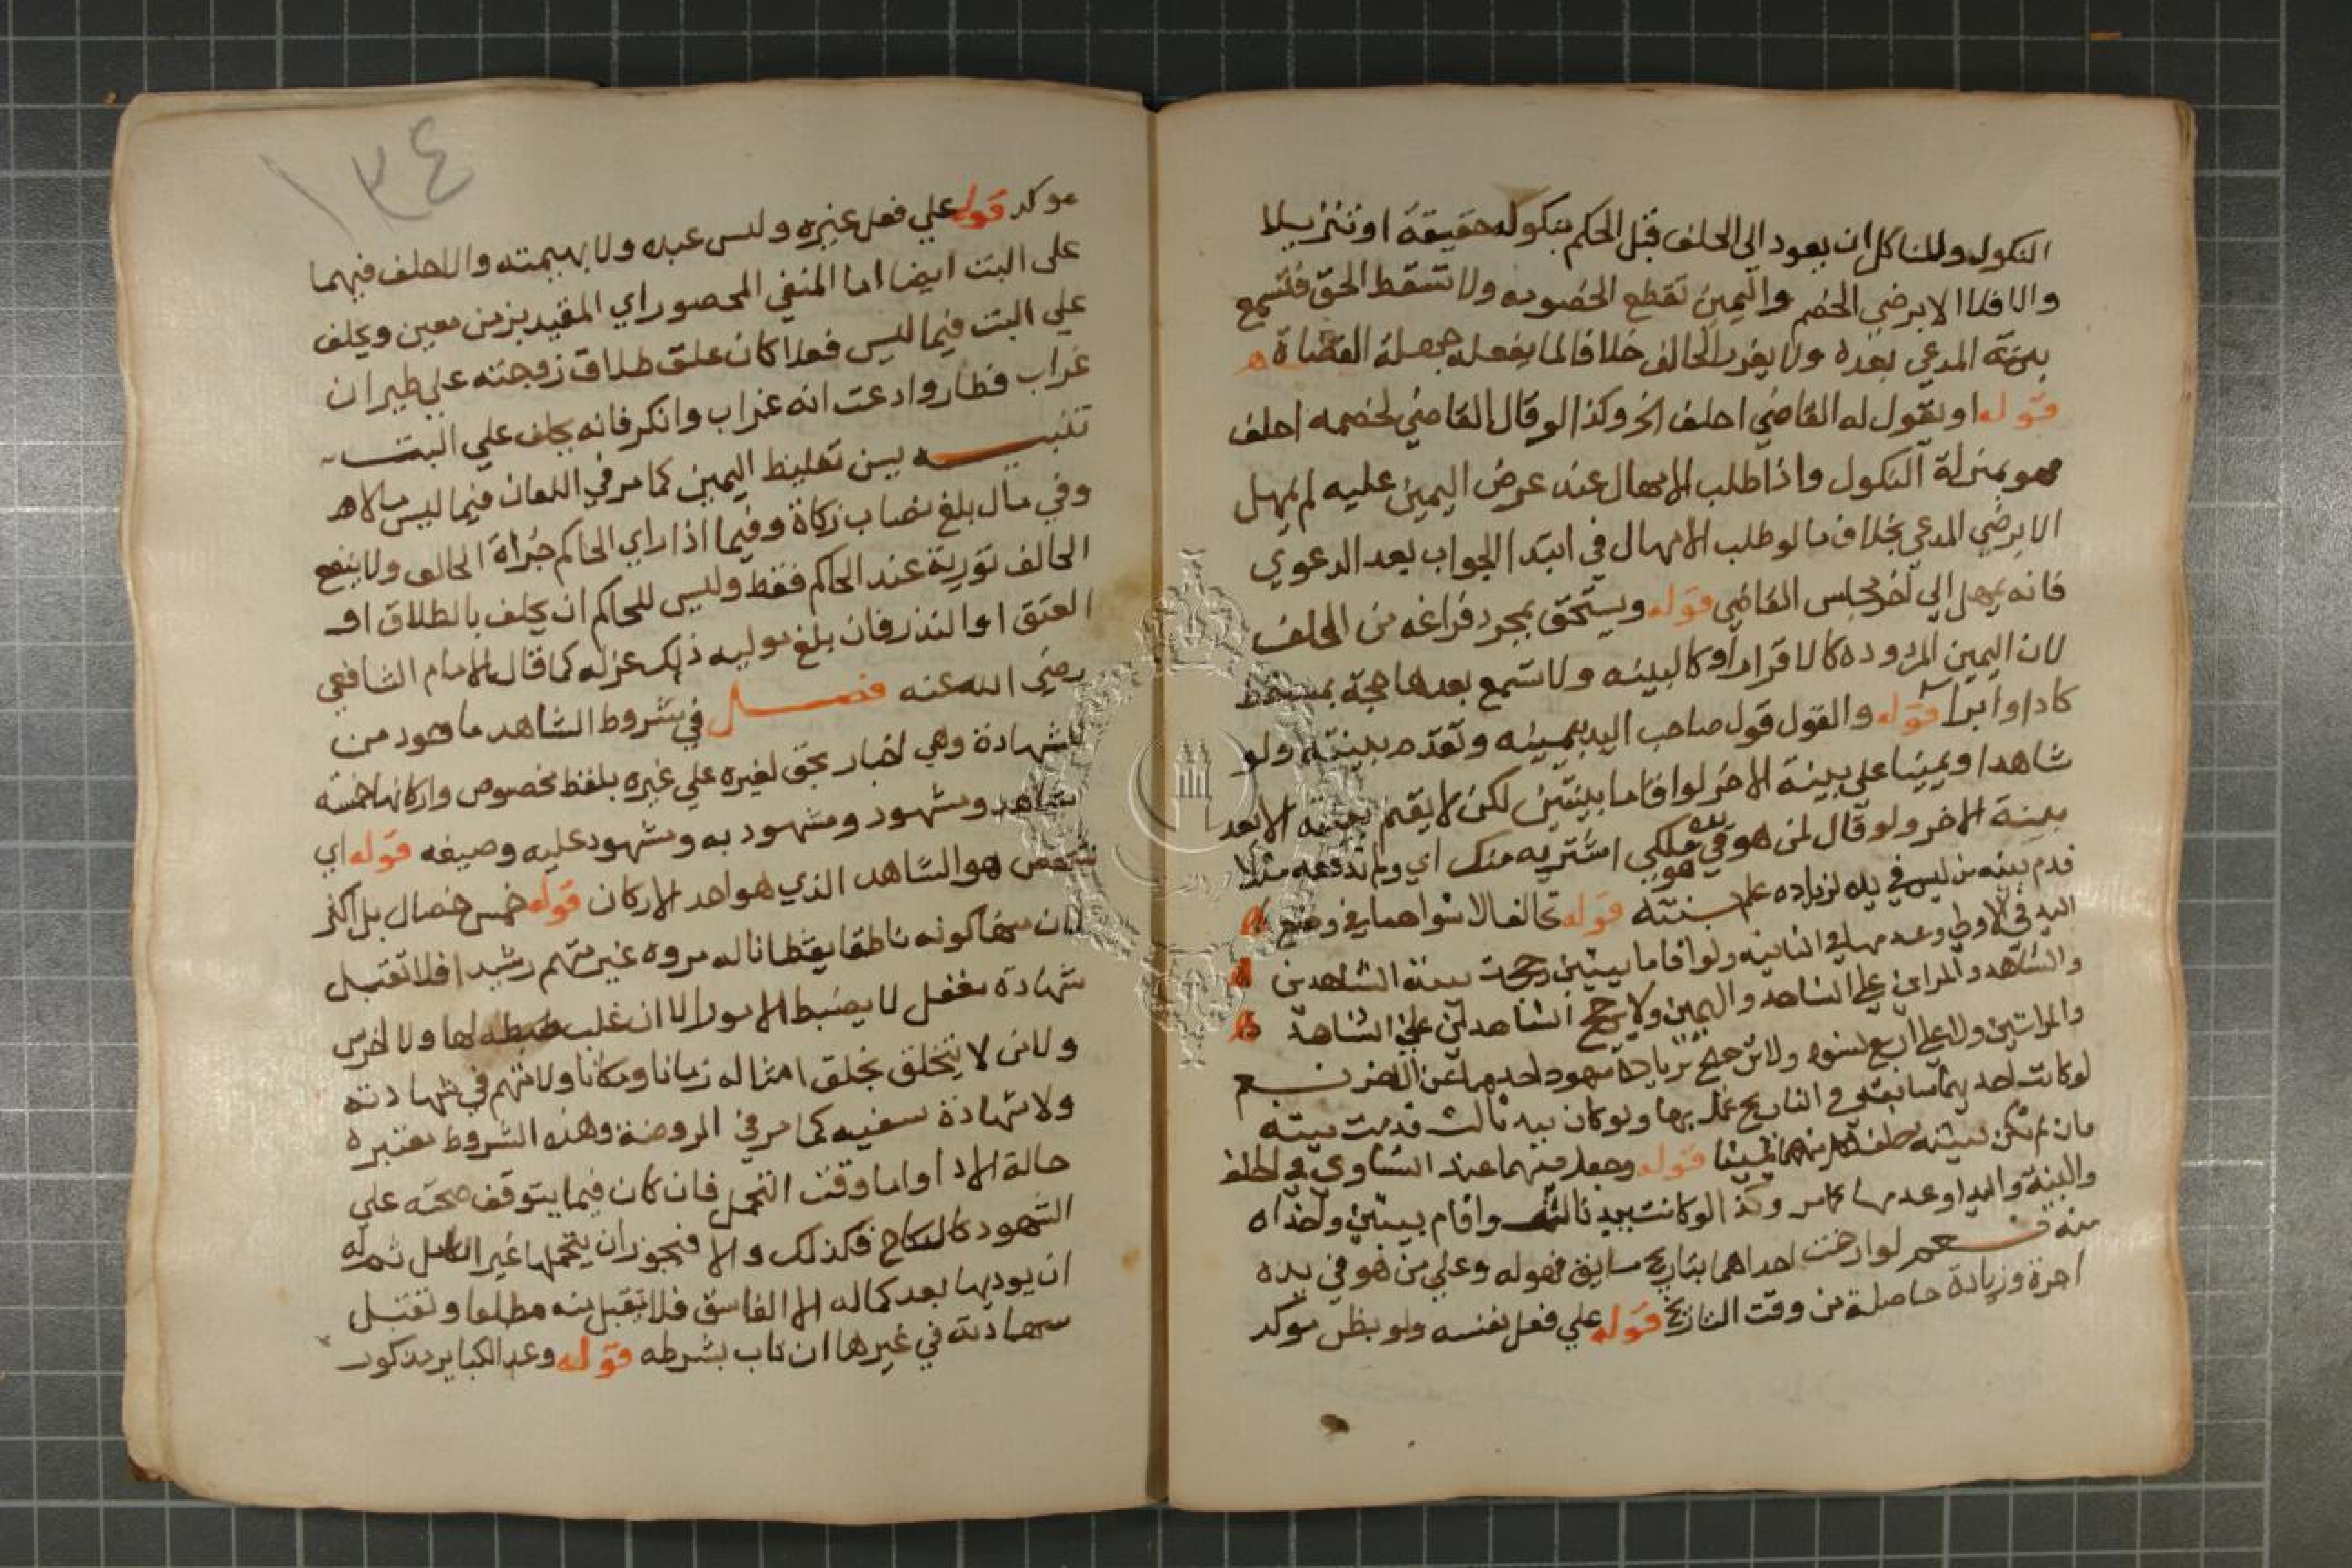 النكول وللناكل ان يعود الى الحلف قبل الحكم بنكوله حقيقة او تنزيلا
والا فلا الا برضى الخصم واليمين تقطع الخصومه ولا تسقط الحق فتسمع
بينة المدعي بعده ولا يعزر الحالف خلافا لما يفعله جهلة القضاة
قوله او يقول له القاضي احلف الخ وكذا لو قال القاضي لخصمه احلف
فهو بمنزلة النكول واذا طلب الامهال عند عرض اليمين عليه لم يمهل
الا برضى المدعي بخلاف ما لو طلب الامهال في ابتدا الجواب بعد الدعوي
فانه يمهل الي اخر مجلس القاضي قوله ويستحق بمجرد فراغه من الحلف
لان اليمين المردوده كالاقرار او كالبينه ولا تسمع بعدها حجة بمسقط
كاداء او ابرا قوله والقول قول صاحب اليد بيمينه وتقدم بينته ولو
شاهدا ويمينا على بينة الاخر لو اقاما بينتين لكن لا يقيم بينته الا بعد
بينة الاخر ولو قال لمن هو في يده هو ملكي اشتريه منك اي ولم تدفعه مثلا
قدم بينه من ليس في يده لزياده علم بينته قوله تحالفا لاستواهما في وضع
اليد في الاولى وعدمها في الثانيه ولو اقاما بينتين رجحت بينة الشاهدين
والشاهد والمراتين على الشاهد واليمين ولا يرجح الشاهدان على الشاهد
والمراتين ولا على اربع نسوه ولا ترجح بزيادة شهود احديهما عن الاخر نعم
لو كانت احديهما سابقة في التاريخ عمل بها ولو كان بيد ثالث قدمت بينته
فان لم تكن بينته حلف لكل منهما يمينا قوله وجعل بينهما عند التساوي في الحلف
والبينة واليد او عدمها كما مر وكذا لو كانت بيد ثالث واقام بينتين واخذاه
منه نعم لو ارخت احداهما بتاريخ سابق فهو له وعلي من هو في يده
اجرة وزيادة حاصلة من وقت التاريخ قوله علي فعل نفسه ولو بظن موكد
١٣٤
موكد قوله علي فعل غيره وليس عبده ولا بهيمته والا حلف فيهما
على البت ايضا اما المنفي المحصور اي المقيد بزمن معين ويحلف
علي البت فيما ليس فعلا كان علق طلاق زوجته علي طيران
غراب فطار وادعت انه غراب وانكر فانه يحلف علي البت
تنبيه يسن تغليظ اليمين كما مر في اللعان فيما ليس مالا هـ
وفي مال بلغ نصاب زكاة وفيما اذا راي الحاكم جراة الحالف ولا ينفع
الحالف تورية عند الحاكم فقط وليس للحاكم ان يحلف بالطلاق او
العتق او النذر فان بلغ موليه ذلك عزله كما قال الامام الشافعي
رضي الله عنه فصل في شروط الشاهد ماخود من
الشهادة وهي اخبار بحق لغيره علي غيره بلفظ مخصوص واركانها خمسة
شاهد ومشهود ومشهود به ومشهود عليه وصيغه قوله اي
شخص هو الشاهد الذي هو احد الاركان قوله خمس خصال بل اكثر
لان منها كونه ناطقا يقظانا له مروه غير متهم رشيدا فلا تقبل
شهادة مغفل لا يضبط الامور الا ان غلب ضبطه لها ولا اخرس
ولا من لا يتخلق بخلق امثاله زمانا ومكانا ولا متهم في شهادته
ولا شهادة سفيه كما مر في الروضة وهذه الشروط معتبره
حالة الادا واما وقت التحمل فان كان فيما يتوقف صحته علي
الشهود كالنكاح فكذلك والا فيجوز ان يتحملها غير الكامل ثم له
ان يوديها بعد كماله الا الفاسق فلا تقبل منه مطلقا وتقبل
شهادته في غيرها ان تاب بشرطه قوله وعد الكباير مذكور